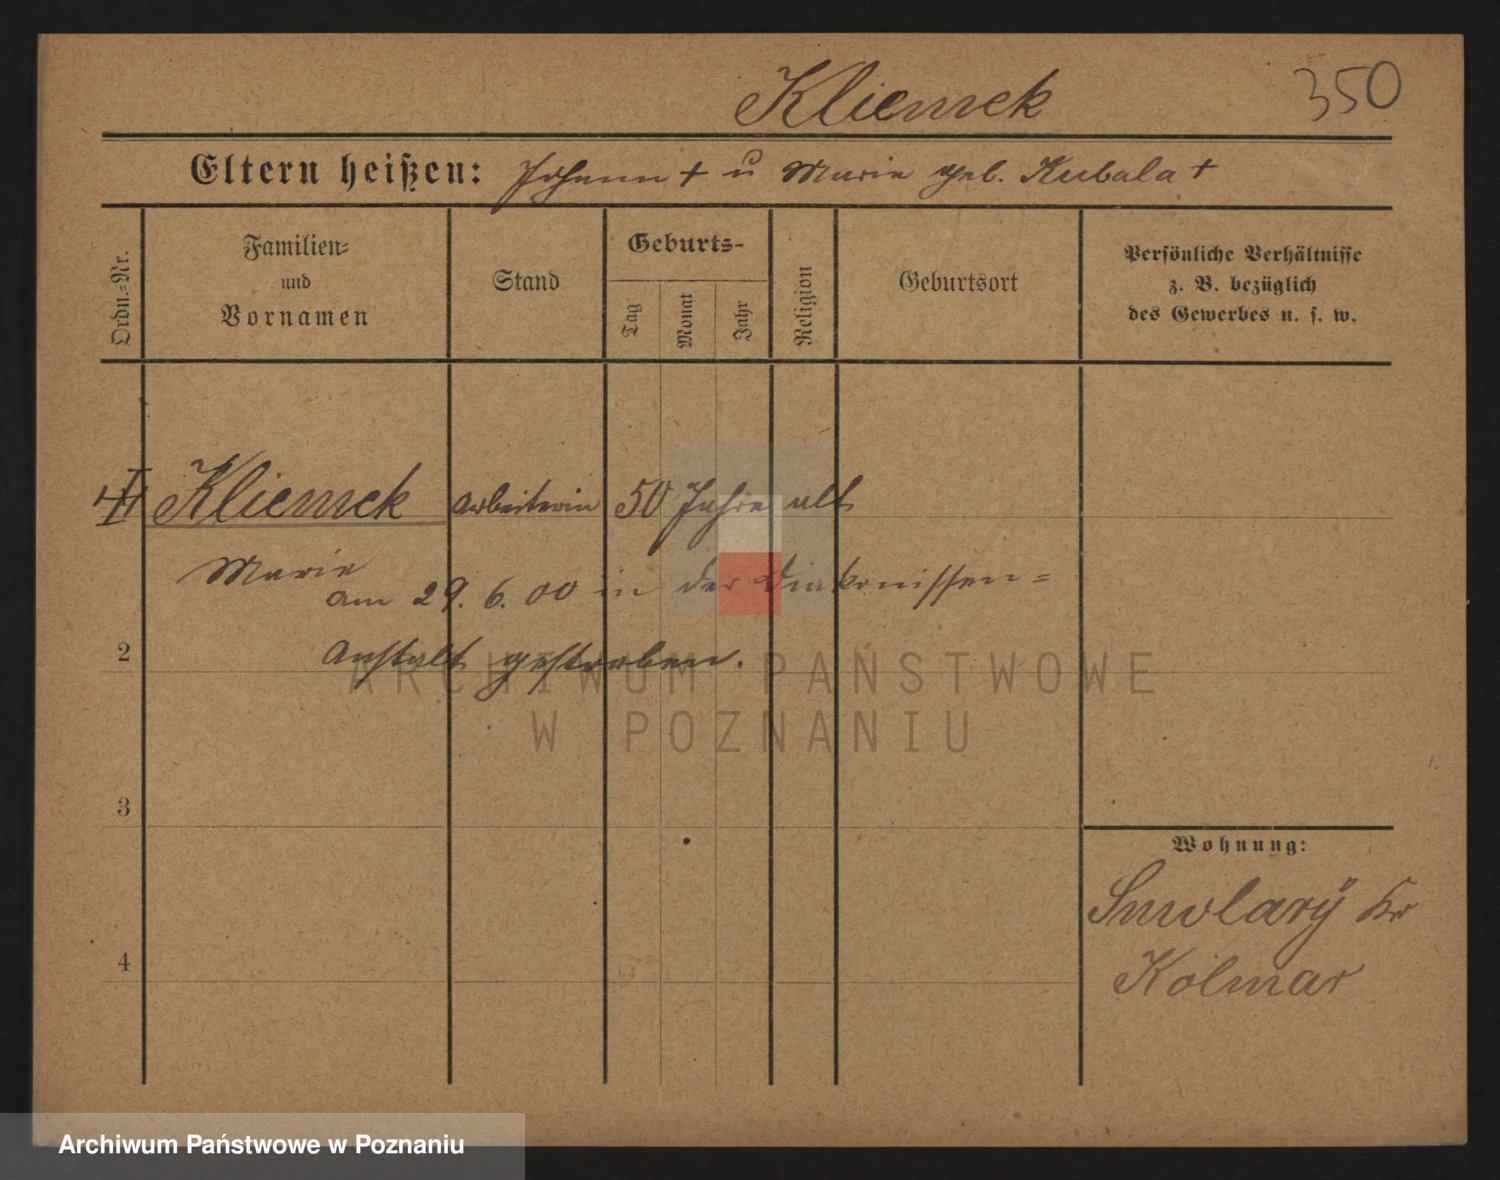 Kliemek 350
Eltern heißen: Johann + u Marie geb. Kubala +
Ordn.-Nr.
Familien-
und
Vornamen
Stand
Geburts-
Tag
Monat
Jahr
Religion
Geburtsort
Persönliche Verhältnisse
z. B. bezüglich
des Gewerbes u. s. w.
Kliemek Arbeiterin 50 Jahre alt
Marie
am 29. 6. 00 in der Diakonissen=
2 Anstalt gestorben.
ARCHIWUM PAŃSTWOWE
W POZNANIU
3
Wohnung:
Smolarÿ Kr
4 Kolmar
Archiwum Państwowe w Poznaniu